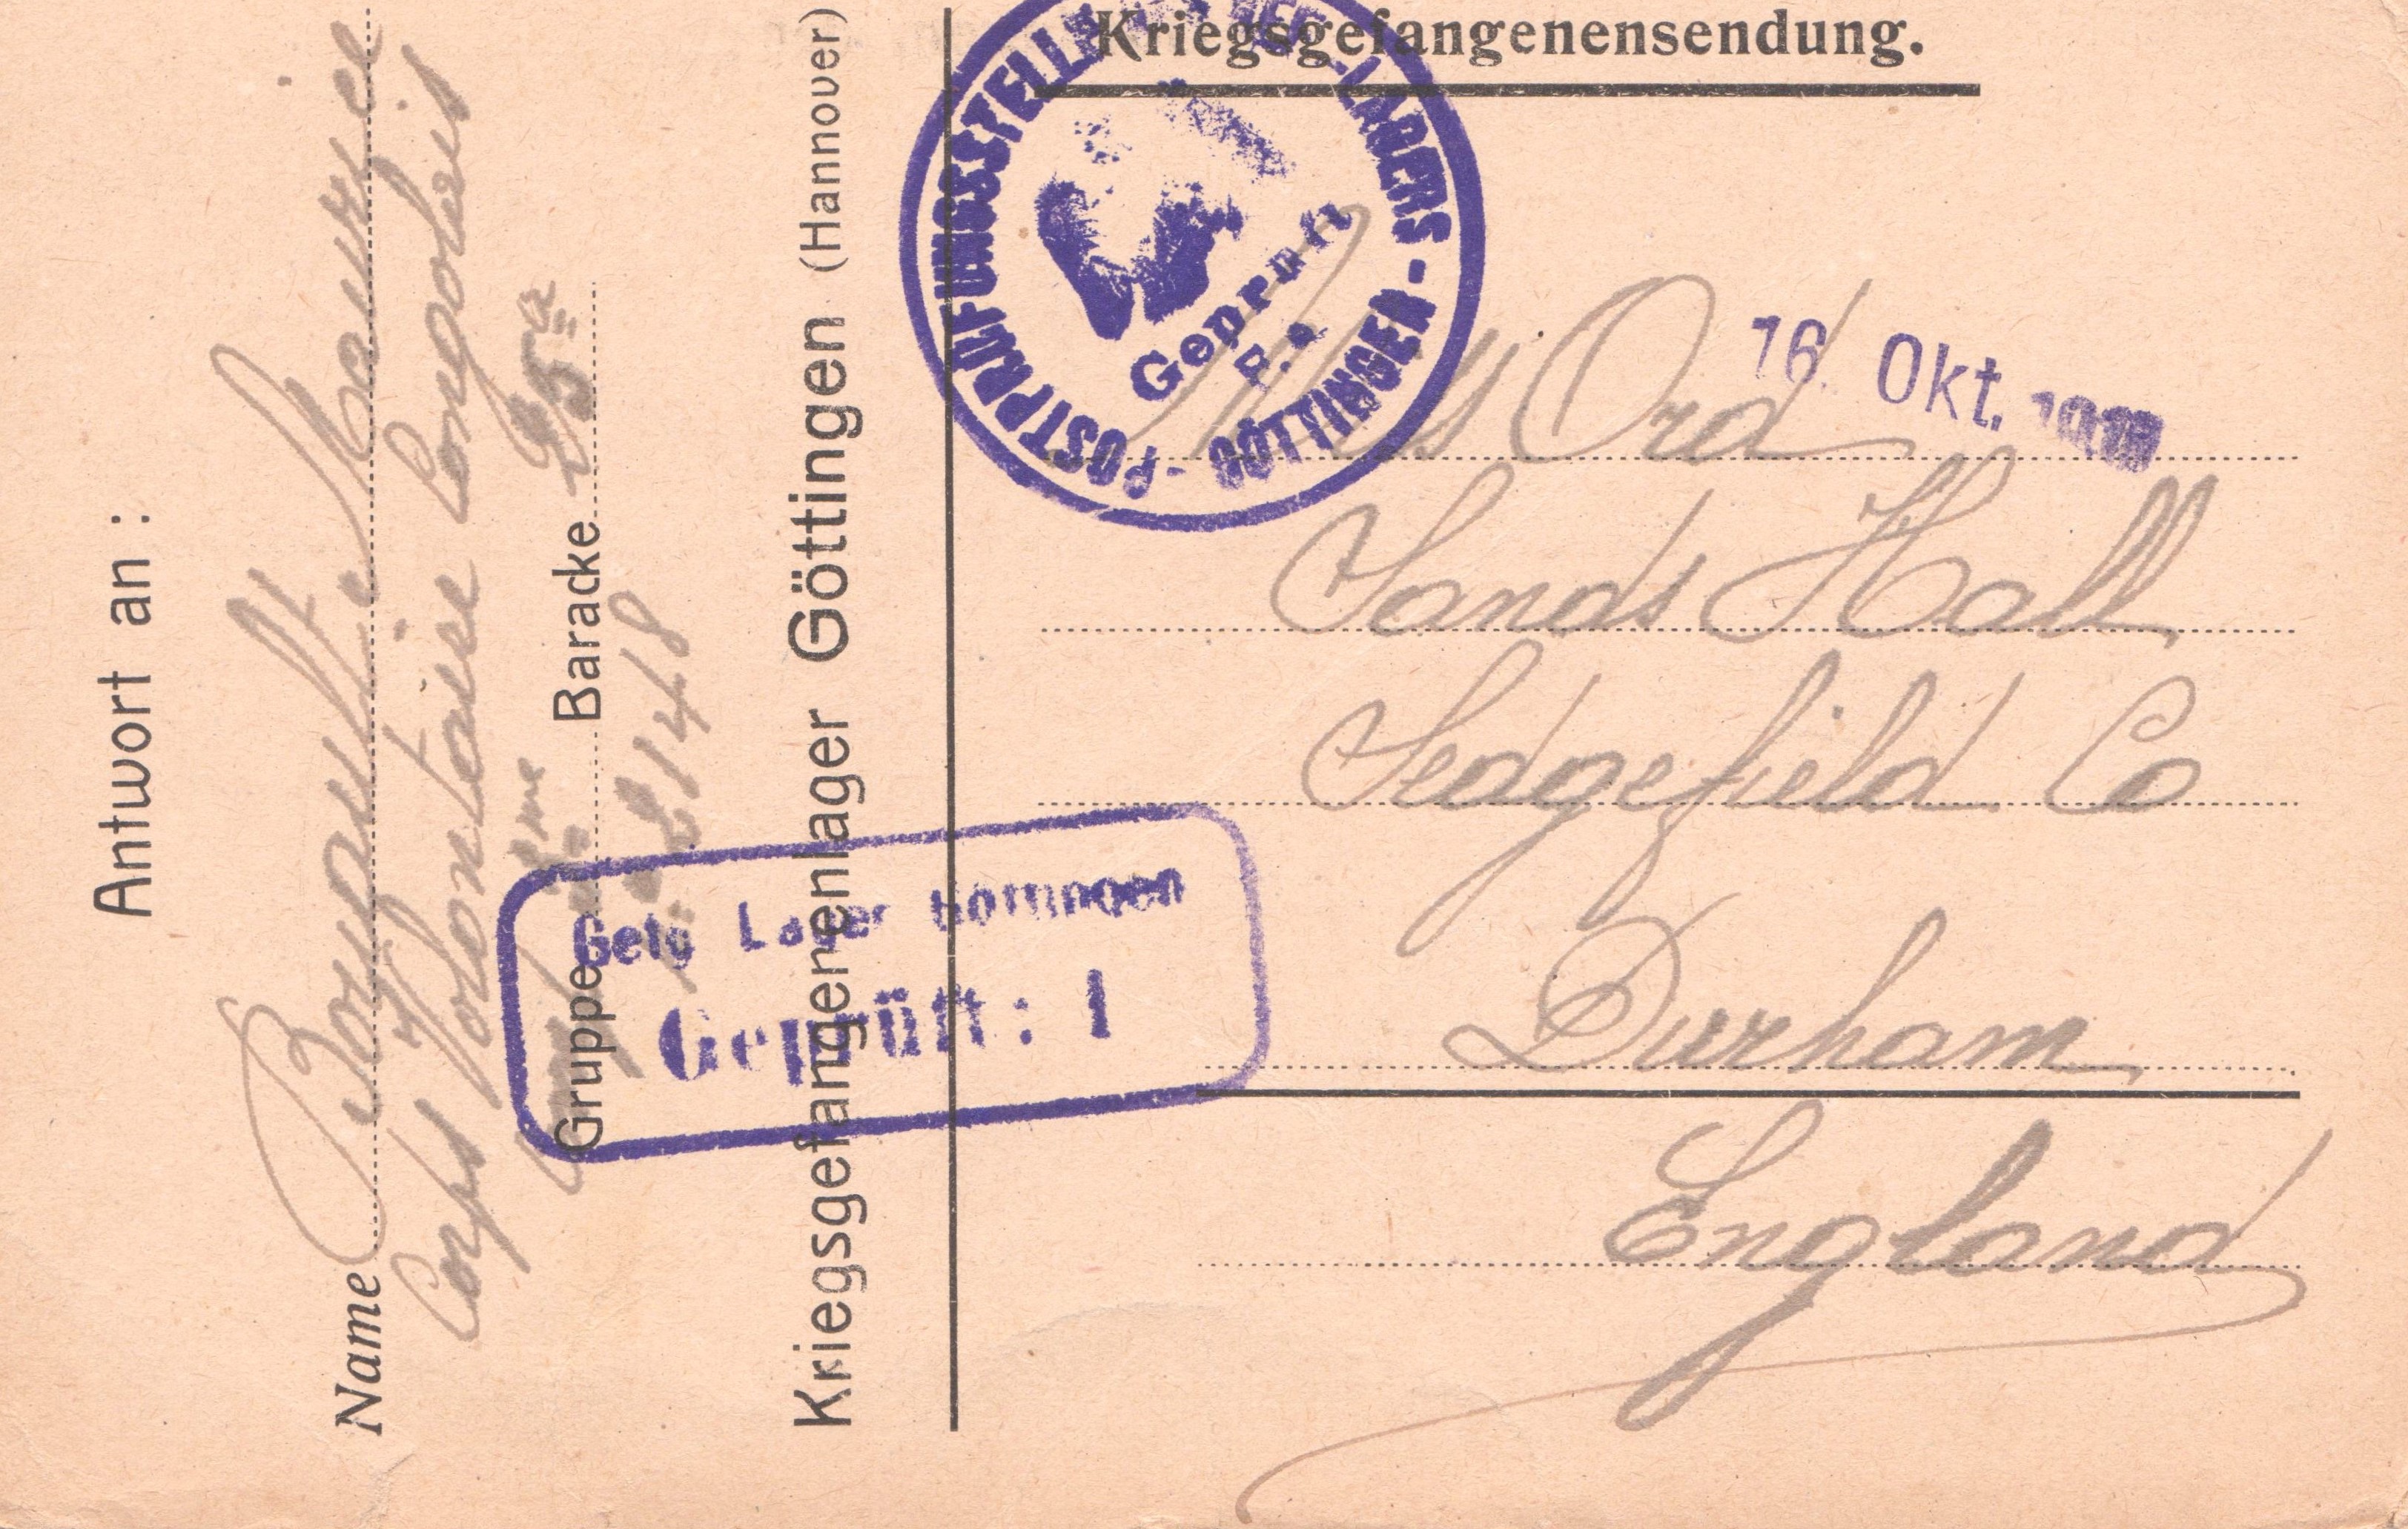 Kriegsgefangenensendung.
POSTPRÜFUNGSSTELLE
LAGERS - GÖTTINGEN -
Geprüft
P.
16. Okt.
Ord
Sands Hall
Sedgefield Co
Durham
England
Antwort an :
Name Maurice
Corps Volontaire Congolais
Gruppe Baracke 25a
L 1448
Kriegsgefangenenlager Göttingen (Hannover)
Geld Lager Göttingen
Geprüft : 1